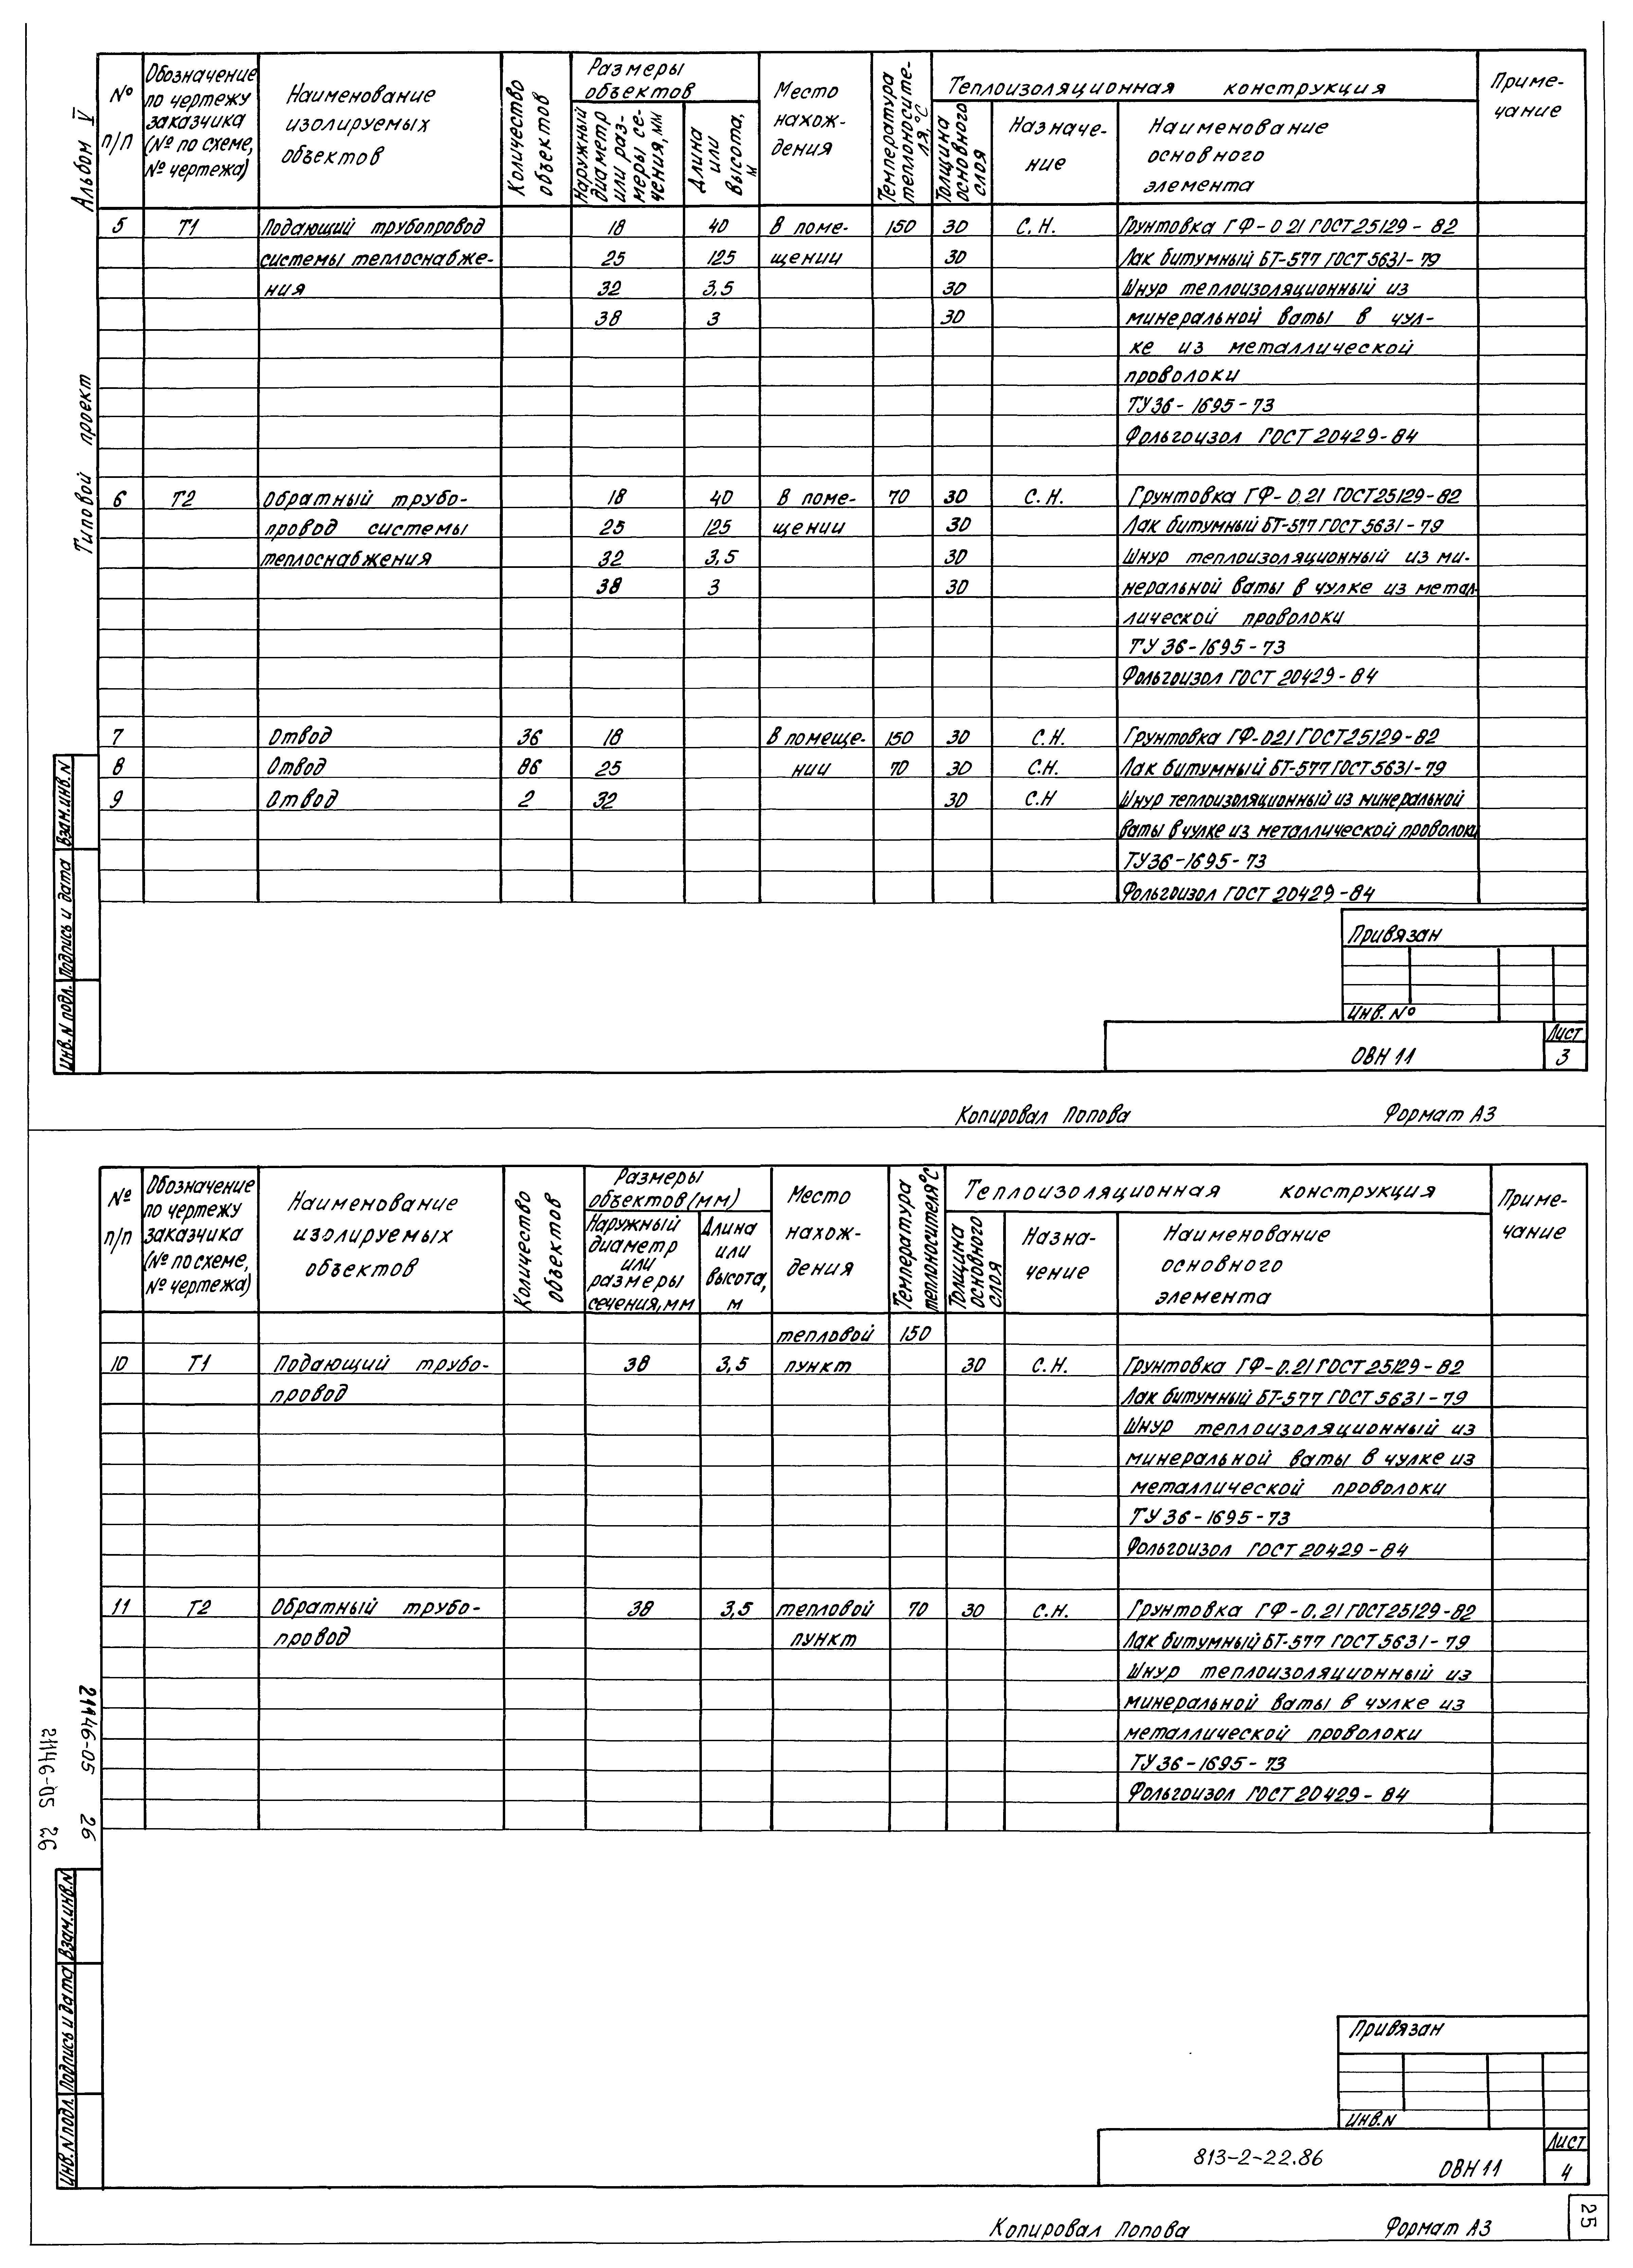 Альбом V
Типовой проект
№ п/п
Обозначение по чертежу заказчика (№ по схеме, № чертежа)
Наименование изолируемых объектов
Количество объектов
Размеры объектов
Наружный диаметр или размеры сечения, мм
Длина или высота, м
Место нахождения
Температура теплоносителя, °С
Теплоизоляционная конструкция
Толщина основного слоя
Назначение
Наименование основного элемента
Примечание
5 Т1 Подающий трубопровод 18 40 В поме- 150 30 С.Н. Грунтовка ГФ-021 ГОСТ 25129-82
системы теплоснабже- 25 125 щении 30 Лак битумный БТ-577 ГОСТ 5631-79
ния 32 3,5 30 Шнур теплоизоляционный из
38 3 30 минеральной ваты в чул-
ке из металлической
проволоки
ТУ 36-1695-73
Фольгоизол ГОСТ 20429-84
6 Т2 Обратный трубо- 18 40 В поме- 70 30 С.Н. Грунтовка ГФ-0.21 ГОСТ 25129-82
провод системы 25 125 щении 30 Лак битумный БТ-577 ГОСТ 5631-79
теплоснабжения 32 3,5 30 Шнур теплоизоляционный из ми-
38 3 30 неральной ваты в чулке из метал-
лической проволоки
ТУ 36-1695-73
Фольгоизол ГОСТ 20429-84
7 Отвод 36 18 В помеще- 150 30 С.Н. Грунтовка ГФ-021 ГОСТ 25129-82
8 Отвод 86 25 нии 70 30 С.Н. Лак битумный БТ-577 ГОСТ 5631-79
9 Отвод 2 32 30 С.Н Шнур теплоизоляционный из минеральной
ваты в чулке из металлической проволоки
ТУ 36-1695-73
Фольгоизол ГОСТ 20429-84
Инв. N подл. Подпись и дата Взам.инв.N
Привязан
Инв. №
ОВН 11
Лист
3
Копировал Попова Формат А3
№ п/п
Обозначение по чертежу заказчика (№ по схеме, № чертежа)
Наименование изолируемых объектов
Количество объектов
Размеры объектов (мм)
Наружный диаметр или размеры сечения, мм
Длина или высота, м
Место нахождения
Температура теплоносителя °С
Теплоизоляционная конструкция
Толщина основного слоя
Назначение
Наименование основного элемента
Примечание
тепловой 150
10 Т1 Подающий трубо- 38 3,5 пункт 30 С.Н. Грунтовка ГФ-0.21 ГОСТ 25129-82
провод Лак битумный БТ-577 ГОСТ 5631-79
Шнур теплоизоляционный из
минеральной ваты в чулке из
металлической проволоки
ТУ 36-1695-73
Фольгоизол ГОСТ 20429-84
11 Т2 Обратный трубо- 38 3,5 тепловой 70 30 С.Н. Грунтовка ГФ-0.21 ГОСТ 25129-82
провод пункт Лак битумный БТ-577 ГОСТ 5631-79
Шнур теплоизоляционный из
минеральной ваты в чулке из
металлической проволоки
ТУ 36-1695-73
Фольгоизол ГОСТ 20429-84
21146-05 26
21146-05 26
Инв. N подл. Подпись и дата Взам.инв.N
Привязан
Инв.N
813-2-22.86
ОВН 11
Лист
4
25
Копировал Попова Формат А3